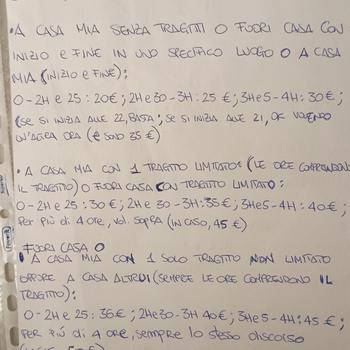 • A CASA MIA SENZA TRAGITTI O FUORI CASA CON
INIZIO E FINE IN UNO SPECIFICO LUOGO O A CASA
MIA (INIZIO E FINE):
0-2H e 25 : 20€; 2He30-3H: 25 €; 3He5-4H: 30€;
(SE SI INIZIA ALLE 22, BASTA; SE SI INIZIA ALLE 21, OK VOLENDO
UN'ALTRA ORA (e SONO 35 €)
• A CASA MIA CON 1 TRAGITTO LIMITATO: (LE ORE COMPRENDONO
IL TRAGITTO) O FUORI CASA CON TRAGITTO LIMITATO:
0-2H e 25 : 30€; 2He30-3H: 35€; 3He5-4H: 40€;
PER PIÙ DI 4 ORE, SOPRA (IN CASO, 45 €)
FUORI CASA O
• A CASA MIA CON 1 SOLO TRAGITTO NON LIMITATO
OPPURE A CASA ALTRUI (SEMPRE LE ORE COMPRENDONO IL
TRAGITTO):
0-2H e 25: 36€; 2He30-3H 40€; 3He5-4H: 45 €;
PER PIÙ DI 4 ORE, SEMPRE LO STESSO DISCORSO